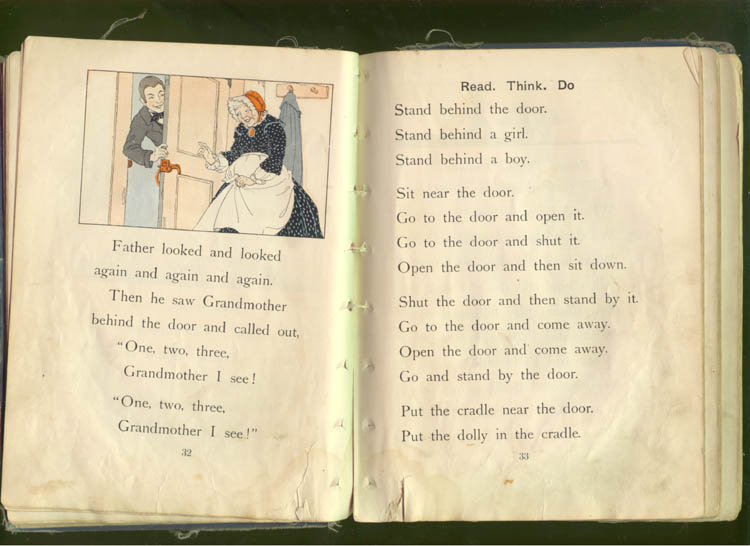 Father looked and looked
again and again and again.
Then he saw Grandmother
behind the door and called out,
"One, two, three,
Grandmother I see!
"One, two, three,
Grandmother I see!"
32
Read. Think. Do
Stand behind the door.
Stand behind a girl.
Stand behind a boy.
Sit near the door.
Go to the door and open it.
Go to the door and shut it.
Open the door and then sit down.
Shut the door and then stand by it.
Go to the door and come away.
Open the door and come away.
Go and stand by the door.
Put the cradle near the door.
Put the dolly in the cradle.
33